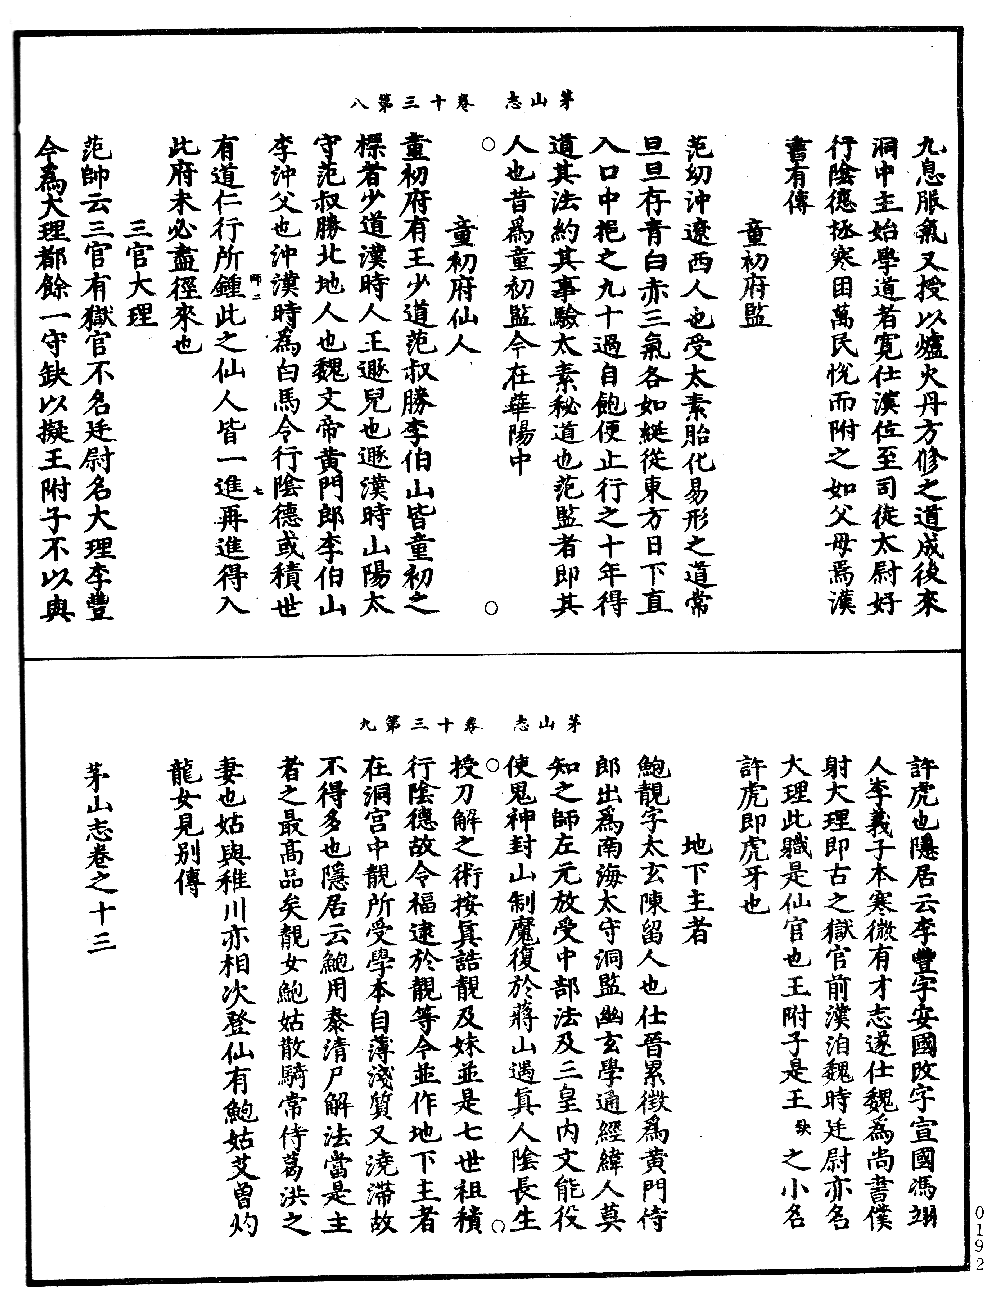 茅山志　卷十三第八
九息服氣又授以爐火丹方修之道成後來
洞中主始學道者寬仕漢位至司徒太尉好
行陰德拯寒困萬民悅而附之如父母焉漢
書有傳
童初府監
范幼沖遼西人也受太素胎化易形之道常
旦旦存青白赤三氣各如綖從東方日下直
入口中挹之九十過自飽便止行之十年得
道其法約其事驗太素秘道也范監者即其
人也昔爲童初監今在華陽中
童初府仙人
童初府有王少道范叔勝李伯山皆童初之
標者少道漢時人王遯兒也遯漢時山陽太
守范叔勝北地人也魏文帝黃門郎李伯山
李沖父也沖漢時爲白馬令行陰德或積世
師二　七
有道仁行所鍾此之仙人皆一進再進得入
此府未必盡徑來也
三官大理
范帥云三官有獄官不名廷尉名大理李豐
今爲大理都餘一守缺以擬王附子不以與
茅山志　卷十三第九
許虎也隱居云李豐字安國改字宣國馮翊
人李義子本寒微有才志遂仕魏爲尚書僕
射大理即古之獄官前漢洎魏時廷尉亦名
大理此職是仙官也王附子是王缺之小名
許虎即虎牙也
地下主者
鮑靚字太玄陳留人也仕晉累徴爲黃門侍
郎出爲南海太守洞監幽玄學通經緯人莫
知之師左元放受中部法及三皇內文能役
使鬼神封山制魔復於蔣山遇真人陰長生
授刀解之術按真誥靚及妹並是七世祖積
行陰德故令福逮於靚等今並作地下主者
在洞宮中靚所受學本自薄淺質又澆滯故
不得多也隱居云鮑用泰清尸解法當是主
者之最高品矣靚女鮑姑散騎常侍葛洪之
妻也姑與稚川亦相次登仙有鮑姑艾曾灼
龍女見别傳
茅山志卷之十三
0192